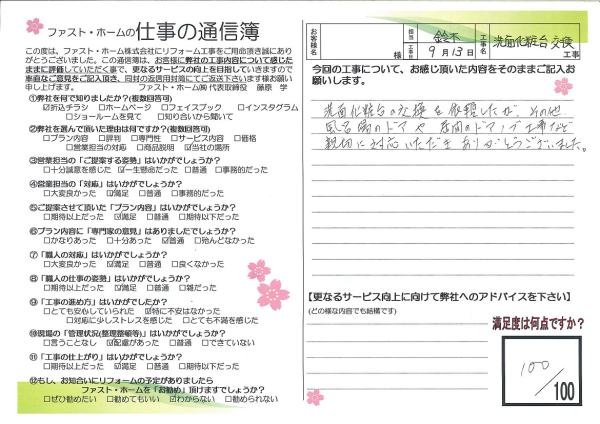 ファスト・ホームの仕事の通信簿
この度は、ファスト・ホーム株式会社にリフォーム工事をご用命頂き誠にあり
がとうございました。この通信簿は、お客様に弊社の工事内容について感じた
ままに評価していただく事で、更なるサービスの向上を目指していきますので
率直なご意見をご記入頂き、同封の返信用封筒にてご返送下さいます様お願い
申し上げます。 ファスト・ホーム㈱代表取締役 藤原 学
①弊社を何で知りましたか?(複数回答可)
☑折込チラシ □ホームページ □フェイスブック □インスタグラム
□ショールームを見て □知り合いから聞いて
②弊社を選んで頂いた理由は何ですか?(複数回答可)
□プラン内容 □評判 □専門性 □サービス内容 □価格
□営業担当の対応 □商品説明 ☑当社の場所
③営業担当の「ご提案する姿勢」はいかがでしょうか?
□十分誠意を感じた ☑一生懸命だった □普通 □事務的だった
④営業担当の「対応」はいかがでしょうか?
□大変良かった ☑満足 □普通 □事務的だった
⑤ご提案させて頂いた「プラン内容」はいかがでしょうか?
□期待以上だった ☑満足 □普通 □期待以下だった
⑥プラン内容に「専門家の意見」はありましたでしょうか?
□かなりあった □十分あった ☑普通 □殆んどなかった
⑦「職人の対応」はいかがでしょうか?
□大変良かった ☑満足 □普通 □良くなかった
⑧「職人の仕事の姿勢」はいかがでしょうか?
□期待以上だった ☑満足 □普通 □雑だった
⑨「工事の進め方」はいかがでしょうか?
□とても安心していられた ☑特に不安はなかった
□対応に少しストレスを感じた □とても不満を感じた
⑩現場の「管理状況(整理整頓等)」はいかがでしょうか?
□言うことなし ☑配慮があった □普通 □できていない
⑪「工事の仕上がり」はいかがでしょうか?
□期待以上だった ☑満足 □普通 □期待以下だった
⑫もし、お知合いにリフォームの予定がありましたら
ファスト・ホームを「お勧め」頂けますでしょうか?
□ぜひ勧めたい □勧めてもいい ☑わからない □勧められない
お客様名 様 担当 鈴木 工事日 9月13日 工事名 洗面化粧台交換 工事
今回の工事について、お感じ頂いた内容をそのままご記入お
願いします。
洗面化粧台の交換を依頼したが、その他
風呂場のドアや居間のドアノブ工事など
親切に対応いただきありがとうございました。
【更なるサービス向上に向けて弊社へのアドバイスを下さい】
(どの様な内容でも結構です)
満足度は何点ですか?
100/100